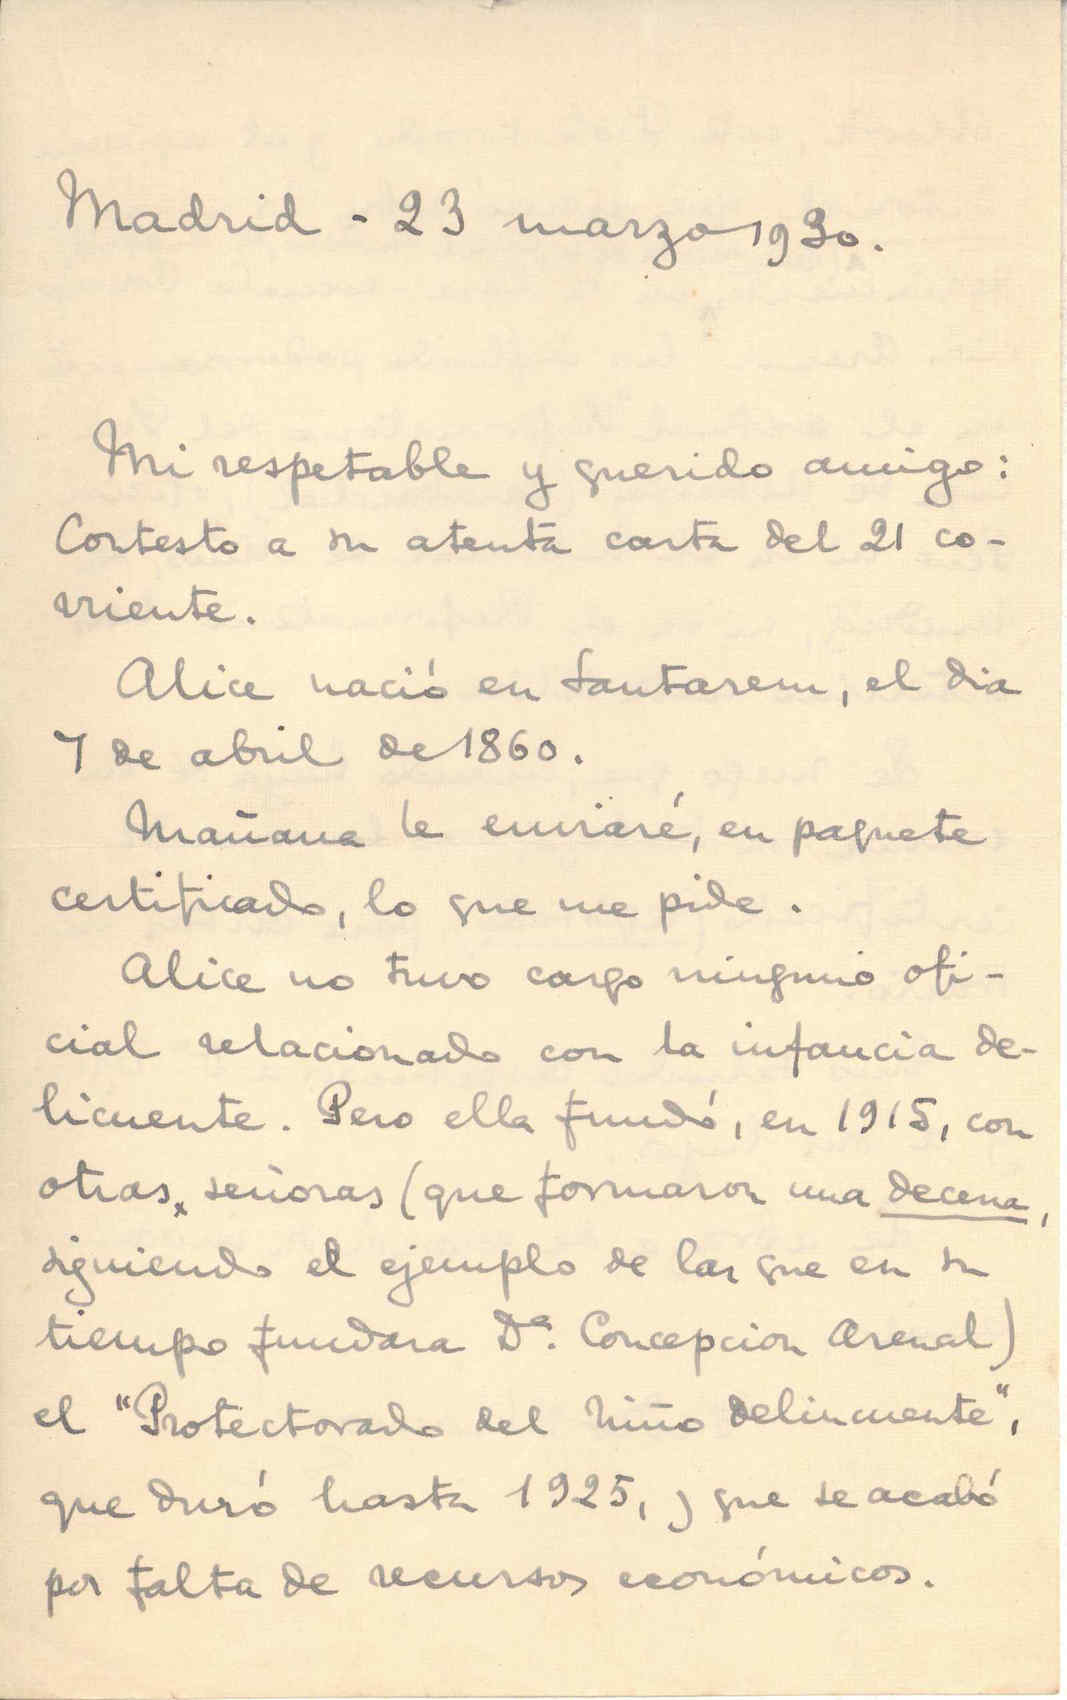 Madrid - 23 marzo 1930.
Mi respetable y querido amigo:
Contesto a su atenta carta del 21 co-
rriente.
Alice nació en Santarem, el dia
7 de abril de 1860.
Mañana le enviaré, en paquete
certificado, lo que me pide.
Alice no tuvo cargo ninguno ofi-
cial relacionado con la infancia de-
licuente. Pero ella fundó, en 1915, con
otras señoras (que formaron una decena,
siguiendo el ejemplo de las que en su
tiempo fundara Dª. Concepcion Arenal)
el "Protectorado del Niño delincuente",
que duró hasta 1925, y que se acabó
por falta de recursos económicos.